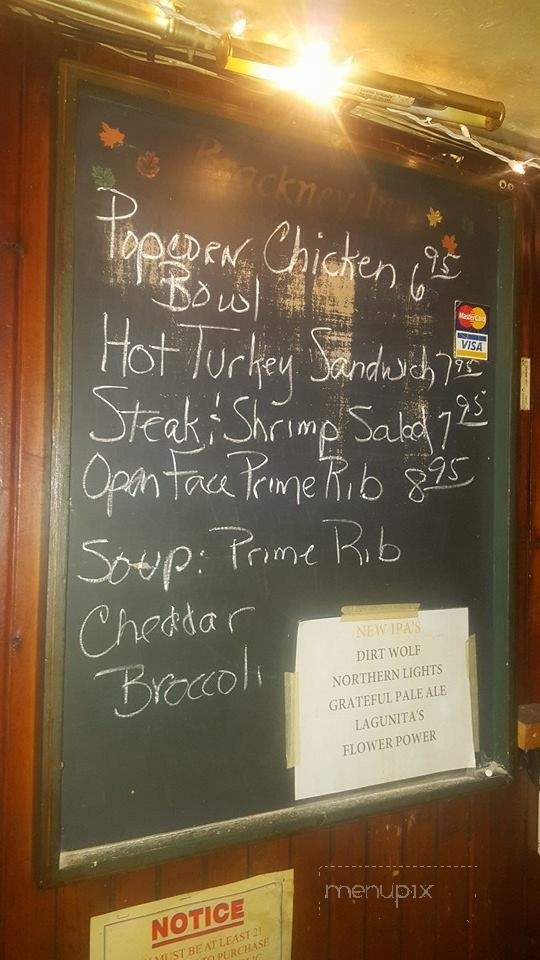 Brackney Inn
Popcorn Chicken 6 95
Bowl
MasterCard
VISA
Hot Turkey Sandwich 7 95
Steak & Shrimp Salad 7 95
Open Face Prime Rib 8 95
Soup: Prime Rib
Cheddar
Broccoli
NEW IPA'S
DIRT WOLF
NORTHERN LIGHTS
GRATEFUL PALE ALE
LAGUNITA'S
FLOWER POWER
menupix
NOTICE
MUST BE AT LEAST 21
TO PURCHASE